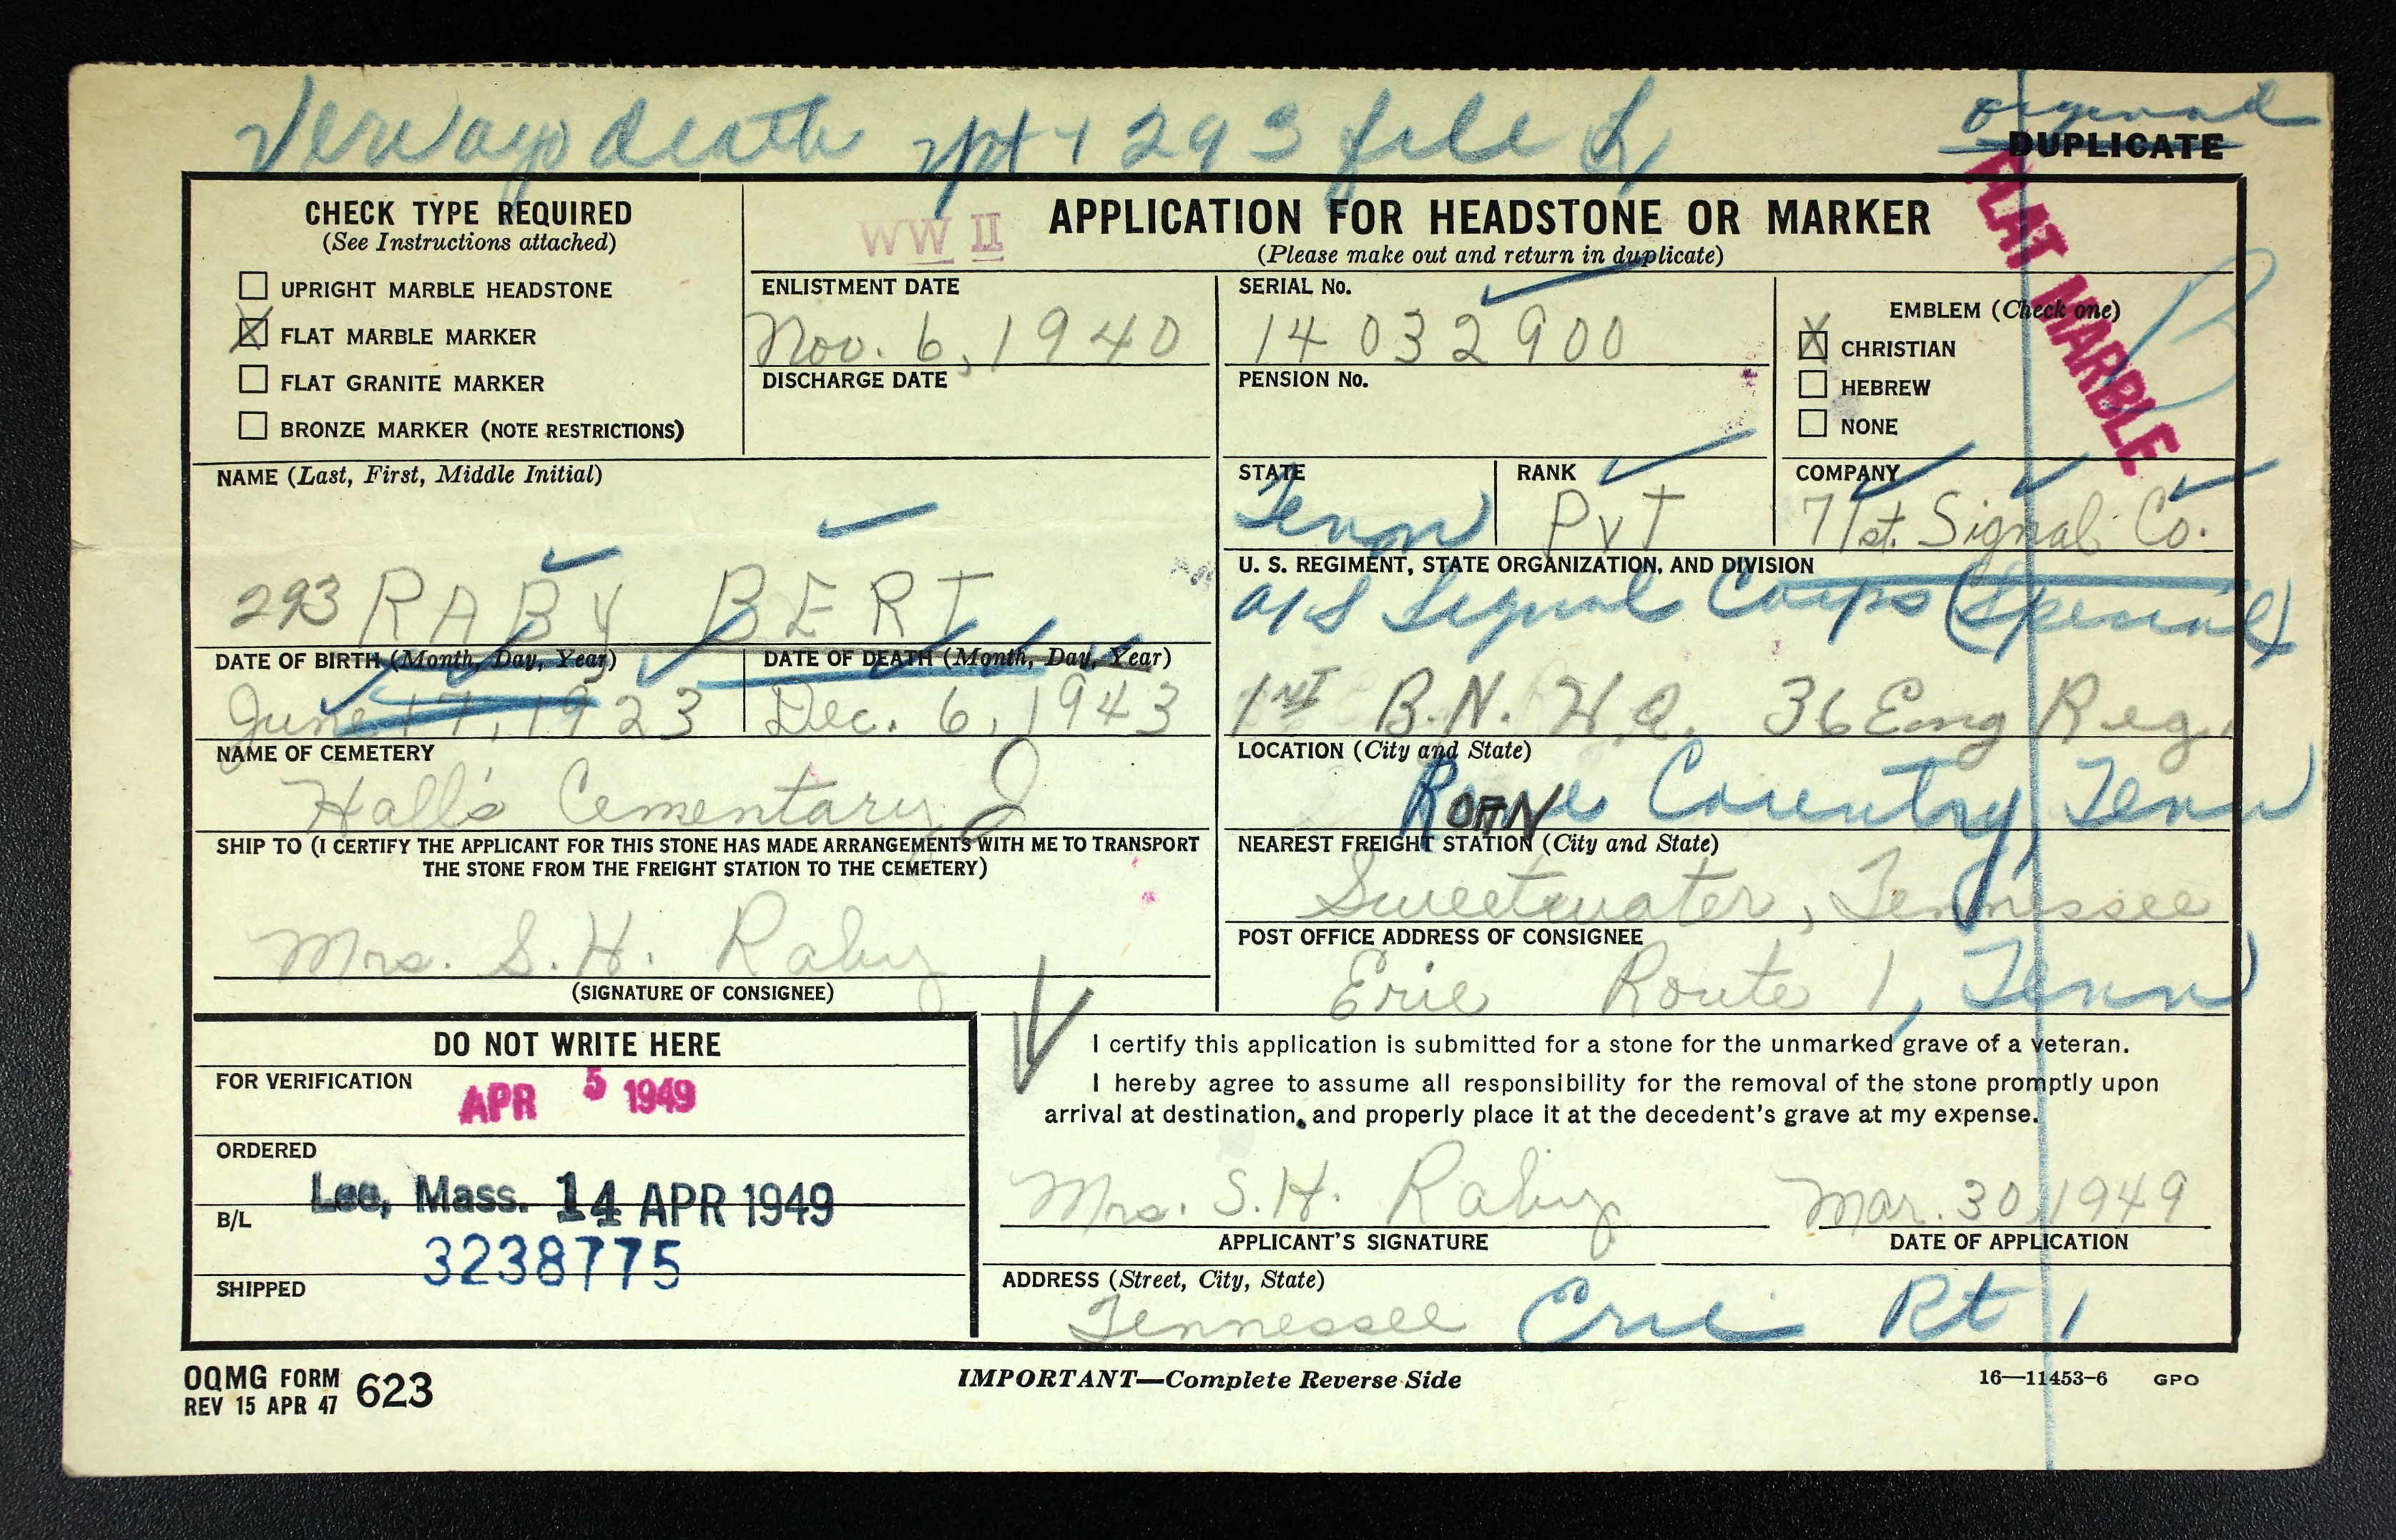 death 293 file
original
DUPLICATE
FLAT MARBLE
CHECK TYPE REQUIRED
(See Instructions attached)
UPRIGHT MARBLE HEADSTONE
X FLAT MARBLE MARKER
FLAT GRANITE MARKER
BRONZE MARKER (NOTE RESTRICTIONS)
WW II
APPLICATION FOR HEADSTONE OR MARKER
(Please make out and return in duplicate)
ENLISTMENT DATE
Nov. 6, 1940
DISCHARGE DATE
SERIAL No.
14 032 900
PENSION No.
EMBLEM (Check one)
X CHRISTIAN
HEBREW
NONE
B
NAME (Last, First, Middle Initial)
293 RABY BERT
STATE
Tenn
RANK
PvT
COMPANY
71st. Signal Co.
U. S. REGIMENT, STATE ORGANIZATION, AND DIVISION
Signal Corps (Special)
1st B.N. 36 Eng Reg.
DATE OF BIRTH (Month, Day, Year)
June 17, 1923
DATE OF DEATH (Month, Day, Year)
Dec. 6, 1943
NAME OF CEMETERY
Hall's Cementary
LOCATION (City and State)
ROAN Country, Tenn
SHIP TO (I CERTIFY THE APPLICANT FOR THIS STONE HAS MADE ARRANGEMENTS WITH ME TO TRANSPORT
THE STONE FROM THE FREIGHT STATION TO THE CEMETERY)
Mrs. S. H. Raby
(SIGNATURE OF CONSIGNEE)
NEAREST FREIGHT STATION (City and State)
Sweetwater, Tennessee
POST OFFICE ADDRESS OF CONSIGNEE
Erie Route 1, Tenn
DO NOT WRITE HERE
FOR VERIFICATION
APR 5 1949
ORDERED
Lee, Mass. 14 APR 1949
B/L
3238775
SHIPPED
I certify this application is submitted for a stone for the unmarked grave of a veteran.
I hereby agree to assume all responsibility for the removal of the stone promptly upon
arrival at destination, and properly place it at the decedent's grave at my expense.
Mrs. S. H. Raby
APPLICANT'S SIGNATURE
Mar. 30, 1949
DATE OF APPLICATION
ADDRESS (Street, City, State)
Tennessee Erie Rt 1
OQMG FORM 623
REV 15 APR 47
IMPORTANT—Complete Reverse Side
16—11453-6 GPO